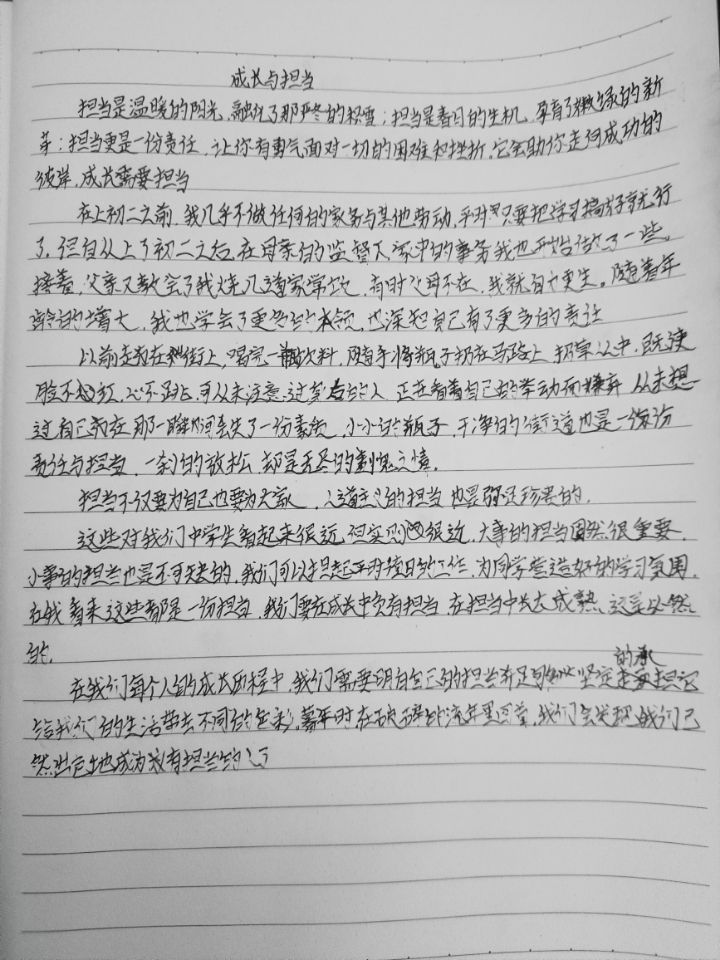 成长与担当
担当是温暖的阳光,融化了那严冬的积雪;担当是春日的生机,孕育了嫩绿的新
芽;担当更是一份责任,让你有勇气面对一切的困难和挫折,它会助你走向成功的
彼岸,成长需要担当
在上初二之前,我几乎不做任何的家务与其他劳动,平时只要把学习搞好就行
了,但自从上了初二之后,在母亲的监督下家中的事务我也开始做了一些,
接着,父亲又教会了我烧几道家常饭,有时父母不在,我就自力更生。随着年
龄的增大,我也学会了更多的本领,也深知自己有了更多的责任
以前走在街上,喝完一瓶饮料,随手将瓶子扔在马路上 扔草丛中,
脸不红,心不跳,可从未注意过背后的人 正在看着自己的举动而嫌弃,从未想
过自己在那一瞬间丢失了一份素质,小小的瓶子,干净的街道也是一份
责任与担当,一刹的放松,却是无尽的羞愧之情。
担当不仅要为自己也要为大家,人道主义的担当也是弥足珍贵的.
这些对我们中学生看起来很远,但实则很近,大事的担当固然很重要,
小事的担当也是不可或缺的,我们可以担起平时值日的工作,为同学营造好的学习氛围,
在我看来这些都是一份担当,我们要在成长中负有担当,在担当中长大成熟,这是必然
的.
在我们每个人的成长历程中,我们需要明白自己的担当 坚定的承担它
给我们的生活带去不同的色彩,暮年时在流年里回首,我们会发现我们已
然出色地成为富有担当的人了